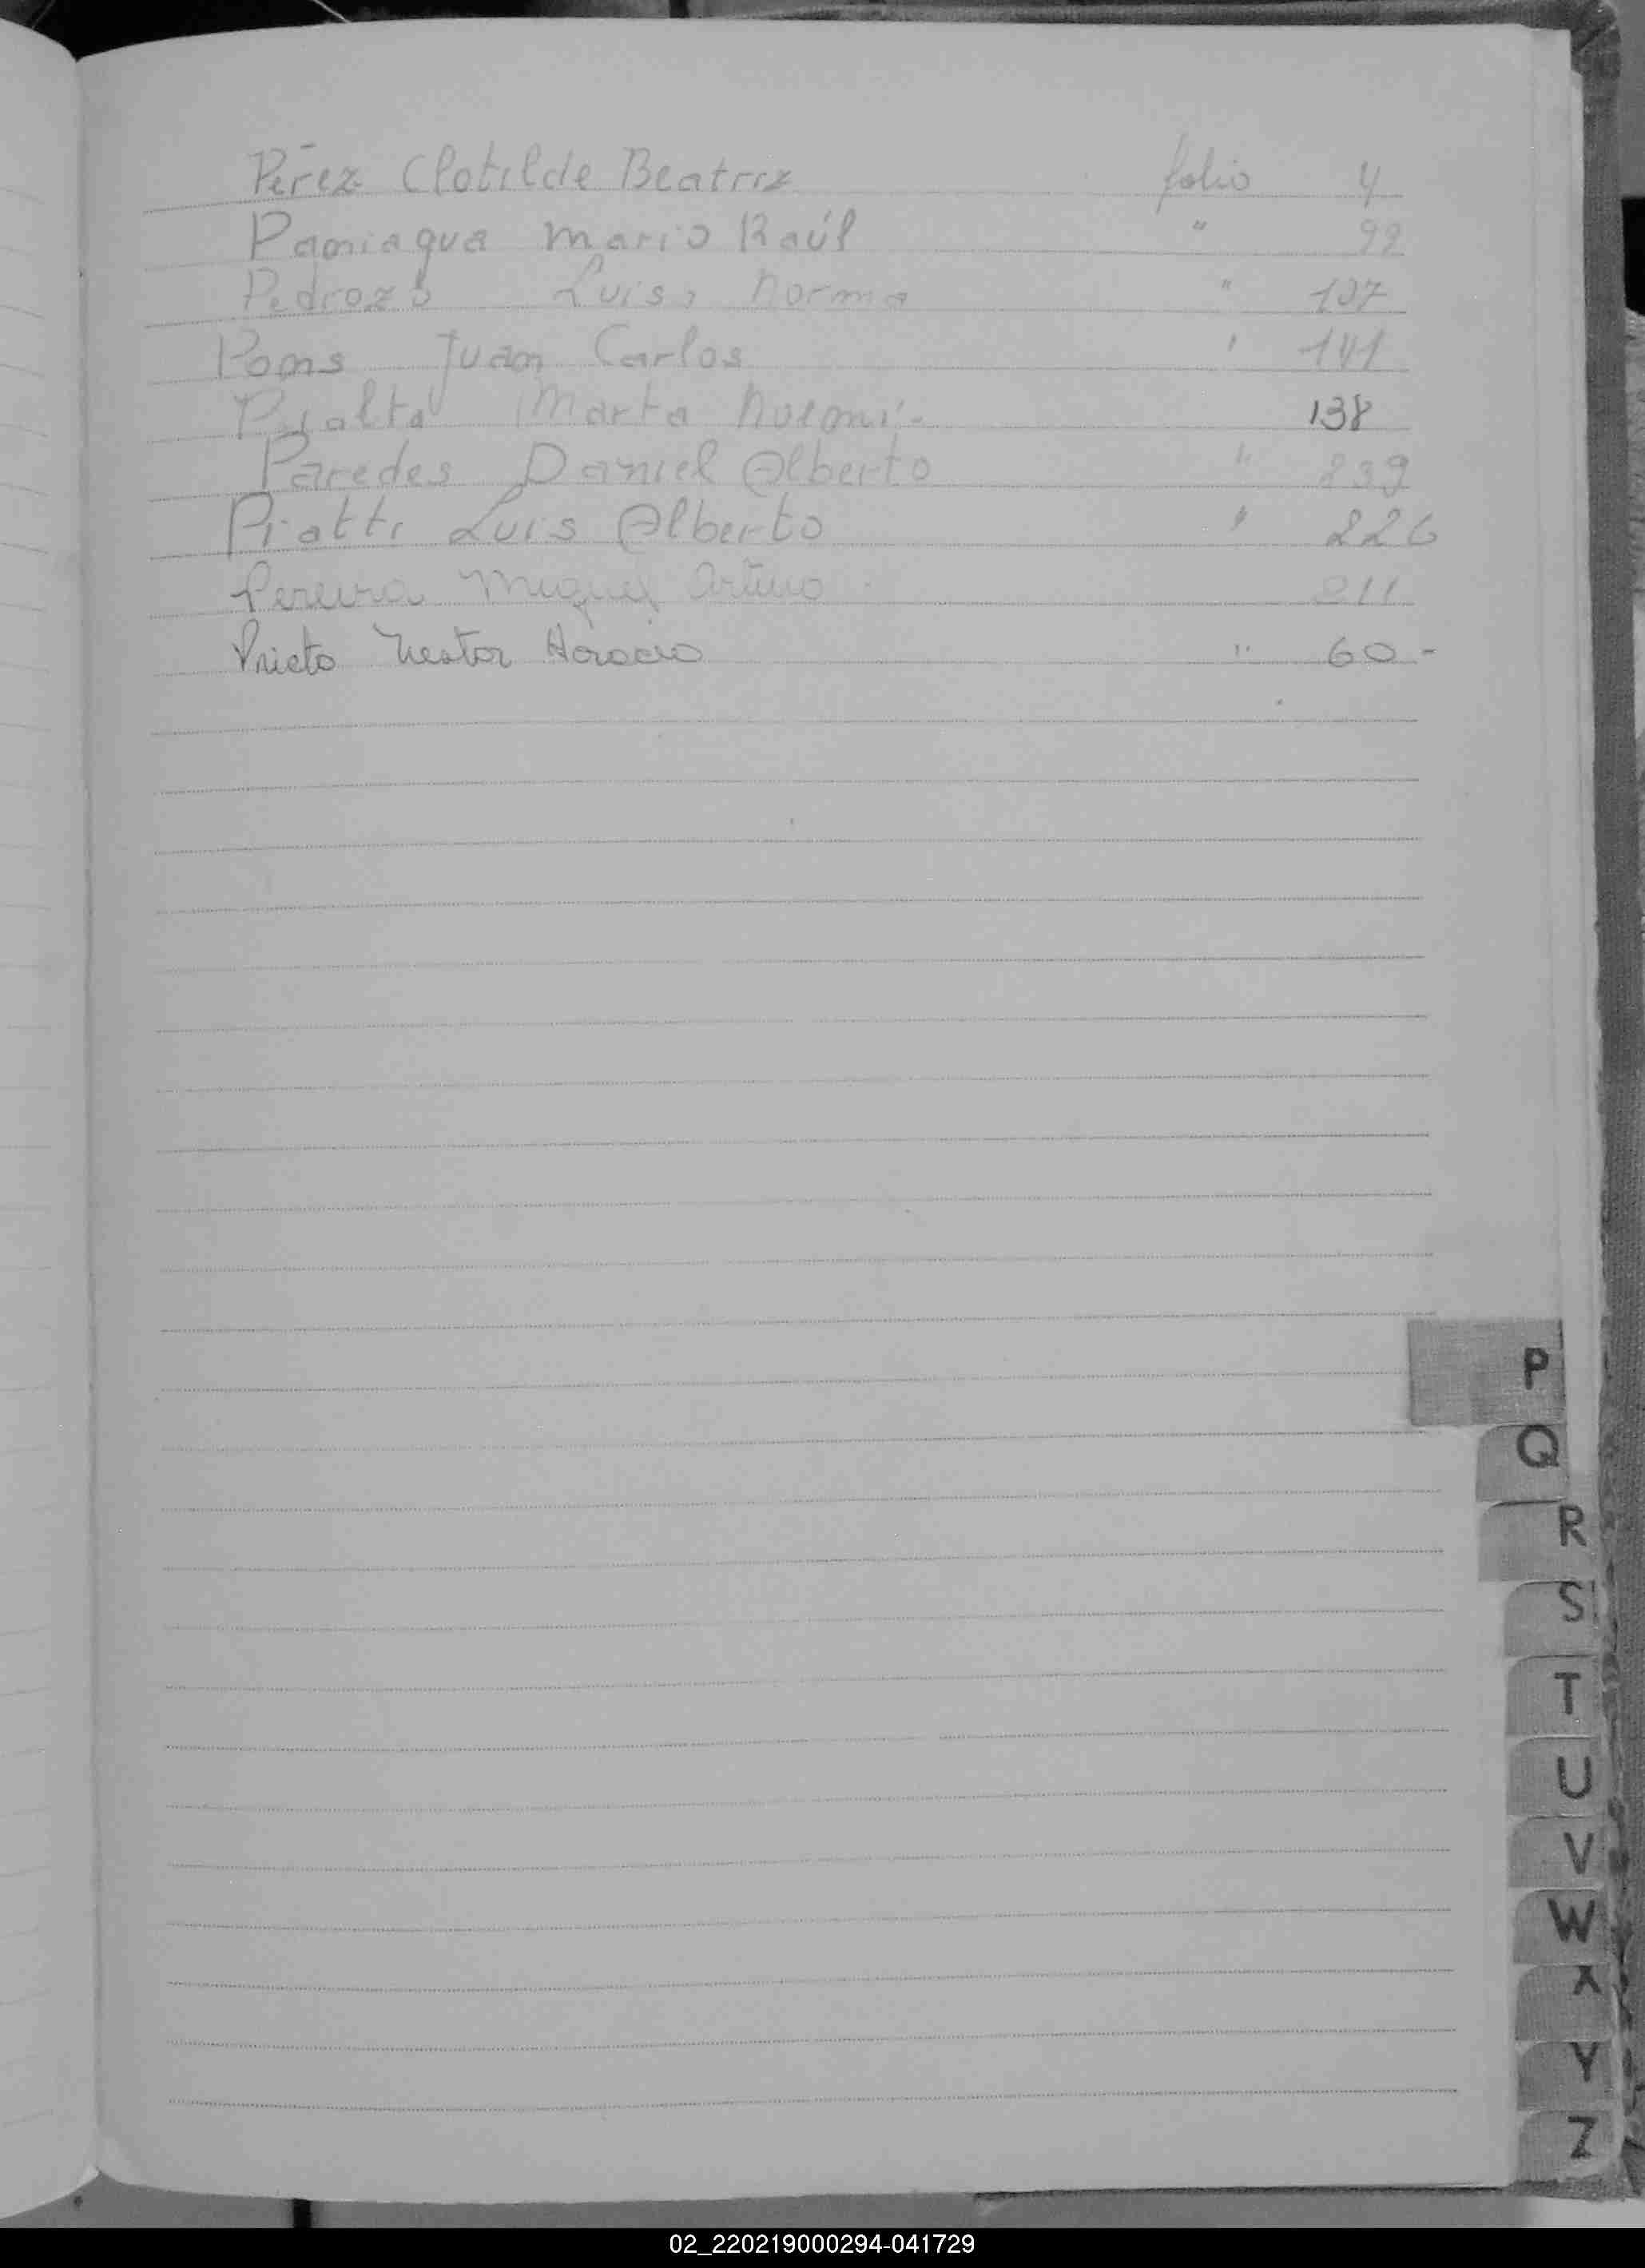 Pérez Clotilde Beatriz folio 4
Paniagua Mario Raúl " 92
Pedrozo Luisa Norma " 107
Pons Juan Carlos " 141
Peralta Marta Noemí - 138
Paredes Daniel Alberto " 239
Piatti Luis Alberto " 226
Pereira Miguel Arturo . 211
Prieto Nestor Horacio " 60 -
P
Q
R
S
T
U
V
W
X
Y
Z
02_220219000294-041729